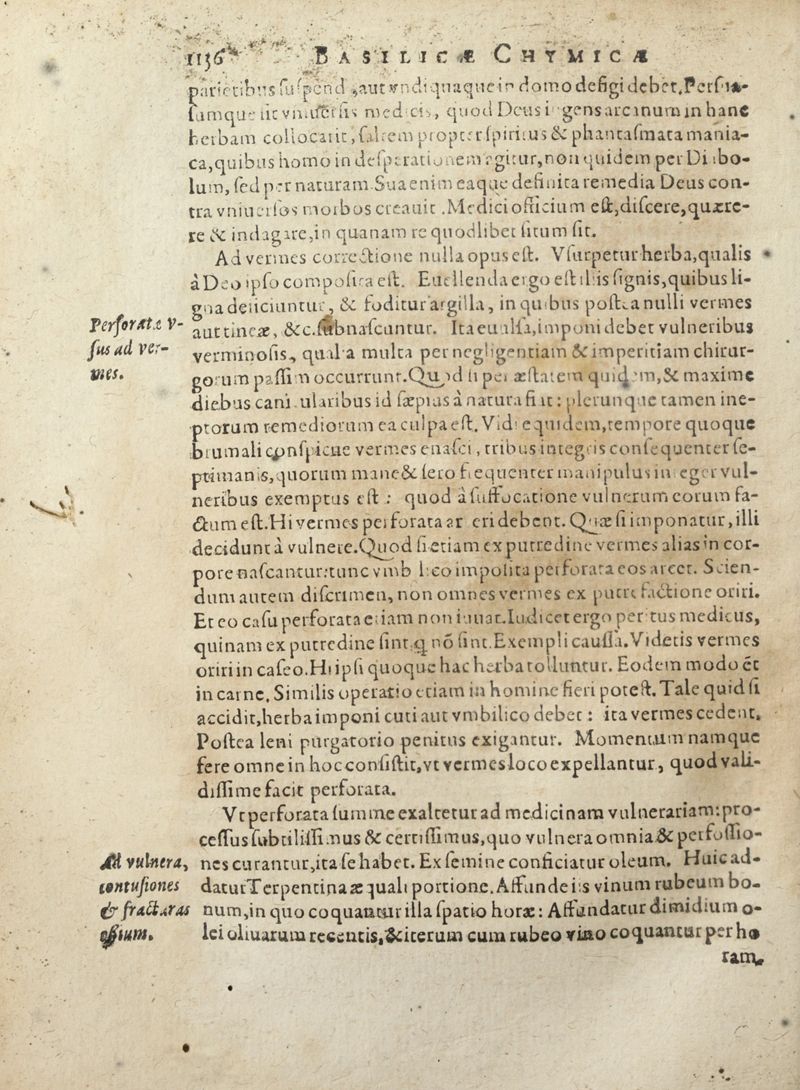 1136 BASILICÆ CHYMICÆ
parietibus suspend ,aut vndiquaque in domo defigi debet.Persua-
sumque sit vniuersis medicis, quod Deus ingens arcanum in hanc
herbam collocarit, saltem propter spiritus & phantasmata mania-
ca,quibus homo in desperationem agitur,non quidem per Diabo-
lum, sed per naturam.Sua enim eaque definita remedia Deus con-
tra vniuersos morbos creauit .Medici officium est,discere,quære-
re & indagare,in quanam re quodlibet situm sit.
Ad vermes correctione nulla opus est. Vsurpetur herba,qualis
à Deo ipso composita est. Euellenda ergo est illis signis,quibus li-
gna deiiciuntur, & foditur argilla, in quibus postea nulli vermes
Perforata v-
sus ad ver-
mes.
aut tineæ, &c.subnascuntur. Ita euulsa,imponi debet vulneribus
verminosis, qualia multa per negligentiam & imperitiam chirur-
gorum passim occurrunt.Quod si per æstatem quidem,& maxime
diebus canicularibus id sæpius à natura fiat: plerunque tamen ine-
ptorum remediorum ea culpa est. Vidi equidem,tempore quoque
brumali conspicue vermes enasci, tribus integris consequenter se-
ptimanis,quorum mane & sero frequenter manipulus integer vul-
neribus exemptus est : quod à suffocatione vulnerum eorum fa-
ctum est.Hi vermes perforata arceri debent. Quæ si imponatur,illi
decidunt à vulnere.Quod si etiam ex putredine vermes alias in cor-
pore nascantur:tunc vmbilico imposita perforata eos arcet. Scien-
dum autem discrimen, non omnes vermes ex putrefactione oriri.
Et eo casu perforata etiam non iuuat.Iudicet ergo peritus medicus,
quinam ex putredine sint,q nõ sint.Exempli caussa.Videtis vermes
oriri in caseo.Hi ipsi quoque hac herba tolluntur. Eodem modo &
in carne. Similis operatio etiam in homine fieri potest. Tale quid si
accidit,herba imponi cuti aut vmbilico debet : ita vermes cedent.
Postea leni purgatorio penitus exigantur. Momentum namque
fere omne in hoc consistit,vt vermes loco expellantur, quod vali-
dissime facit perforata.
Vt perforata summe exaltetur ad medicinam vulnerariam:pro-
cessus subtilissimus & certissimus,quo vulnera omnia & perfossio-
Ad vulnera,
contusiones
& fracturas
ossium.
nes curantur,ita se habet. Ex semine conficiatur oleum. Huic ad-
datur Terpentina æquali portione. Affunde iis vinum rubeum bo-
num,in quo coquantur illa spatio horæ: Affundatur dimidium o-
lei oliuarum recentis,& iterum cum rubeo vino coquantur per ho
ram,